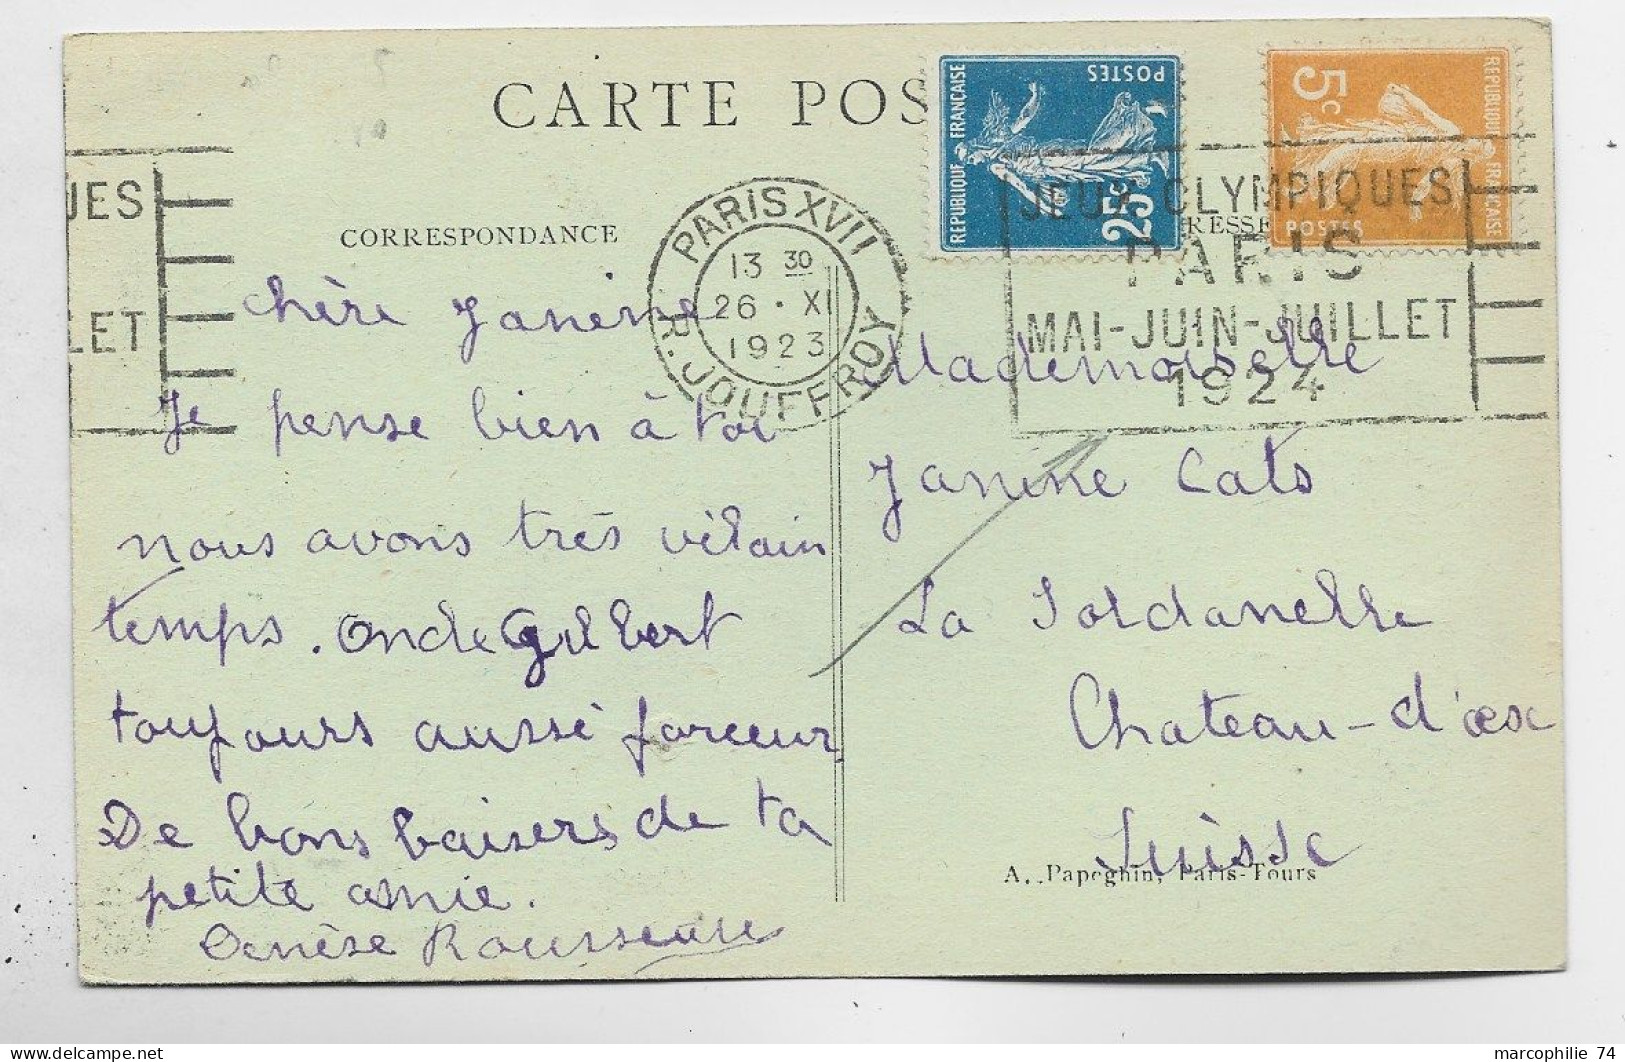 CARTE POS
CORRESPONDANCE
RESSE
REPUBLIQUE FRANÇAISE
POSTES
25c
REPUBLIQUE FRANÇAISE
POSTES
5c
UES
LET
PARIS XVII
13 30
26 · XI
1923
R. JOUFFROY
JEUX OLYMPIQUES
PARIS
MAI-JUIN-JUILLET
1924
Chère Janine
Je pense bien à toi
nous avons très vilain
temps. Oncle Gilbert
toujours aussi farceur
De bons baisers de ta
petite amie.
Denèse
Mademoiselle
Janine Cats
La
Chateau-d'œx
Suisse
A. Papeghin, Paris-Tours
marcophilie 74